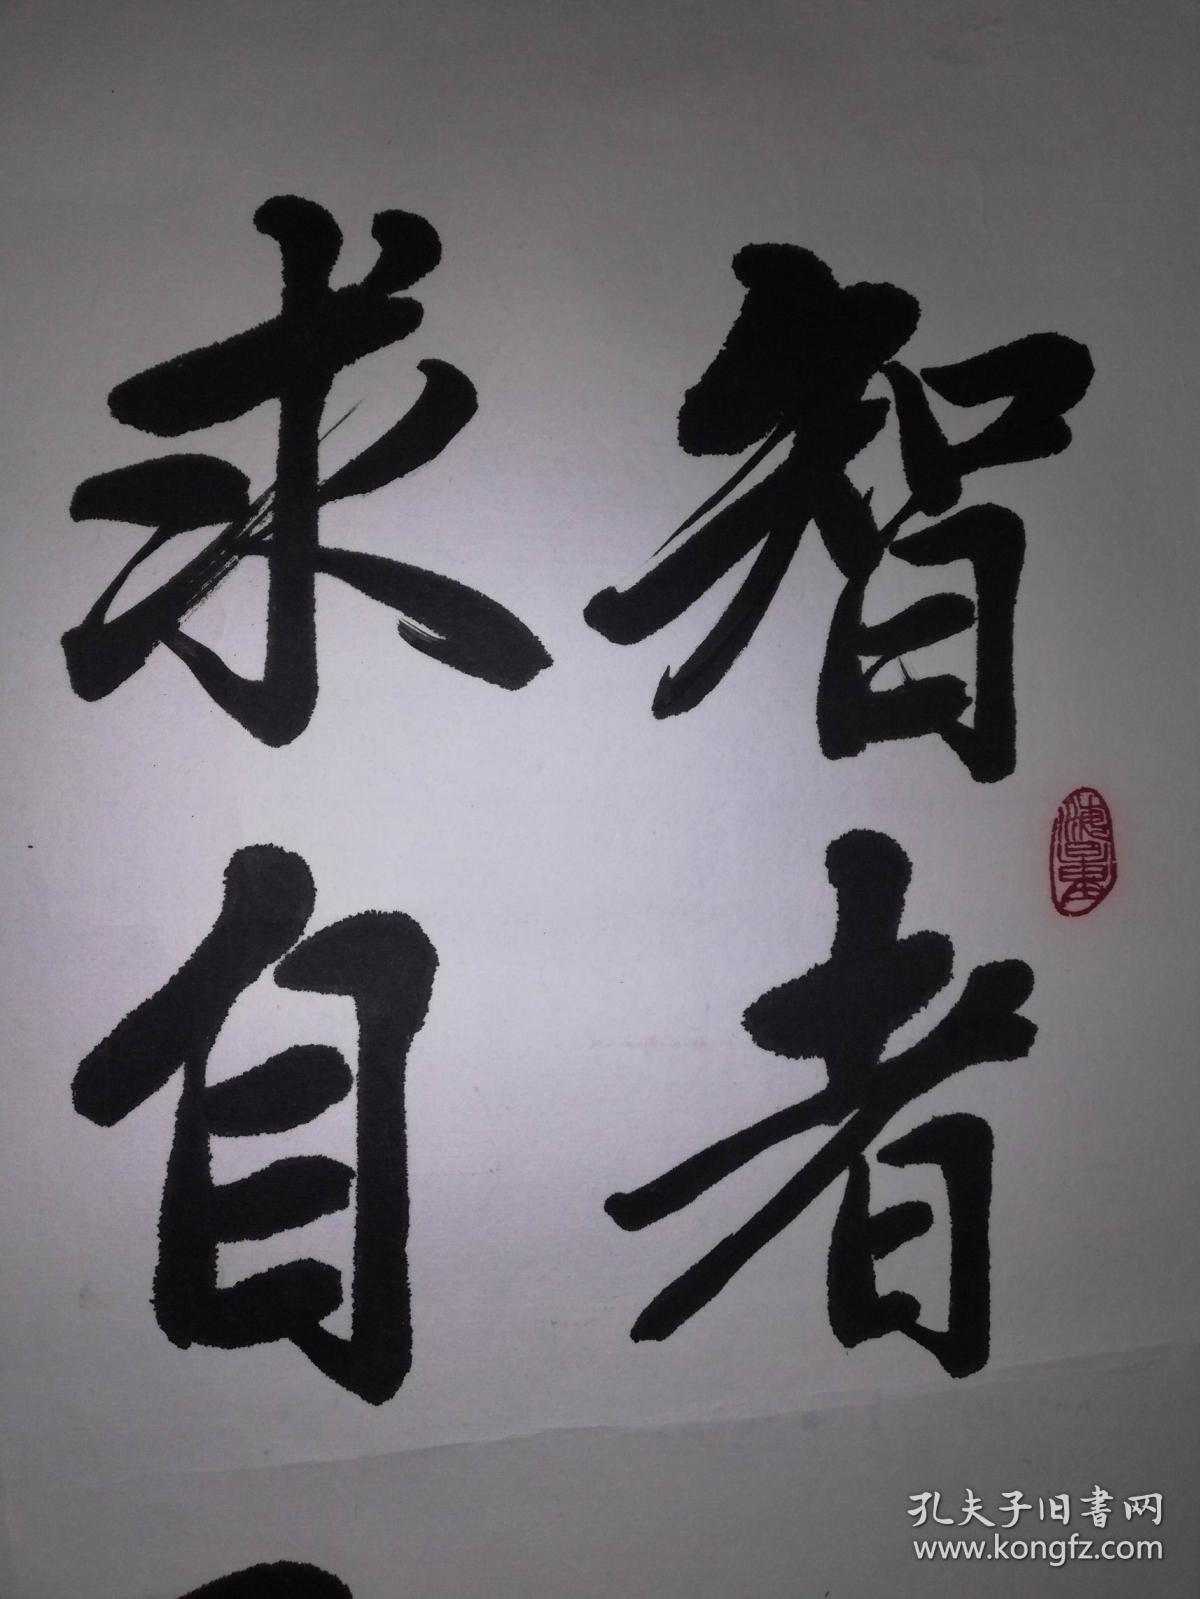 智者
求自
孔夫子旧書网
www.kongfz.com